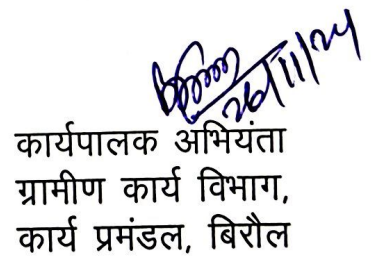 26/11/24
कार्यपालक अभियंता
ग्रामीण कार्य विभाग,
कार्य प्रमंडल, बिरौल